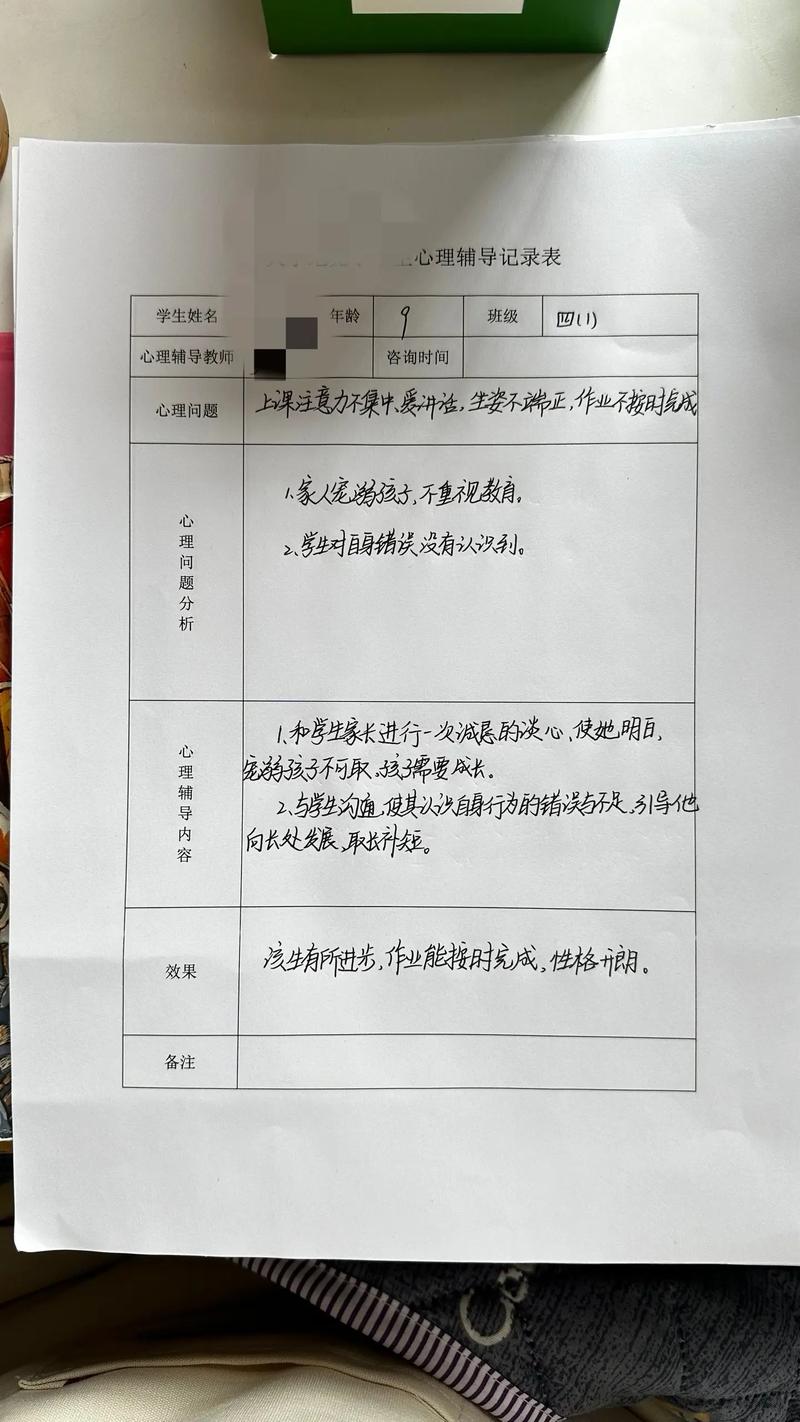 心理辅导记录表
学生姓名 年龄 9 班级 四(1)
心理辅导教师 咨询时间
心理问题 上课注意力不集中、爱讲话,坐姿不端正,作业不按时完成
心理问题分析
1、家人宠溺孩子,不重视教育。
2、学生对自身错误没有认识到。
心理辅导内容
1、和学生家长进行一次诚恳的谈心、使她明白,
宠溺孩子不可取,孩子需要成长。
2、与学生沟通,使其认识自身行为的错误与不足,引导他
向长处发展,取长补短。
效果 该生有所进步,作业能按时完成,性格开朗。
备注